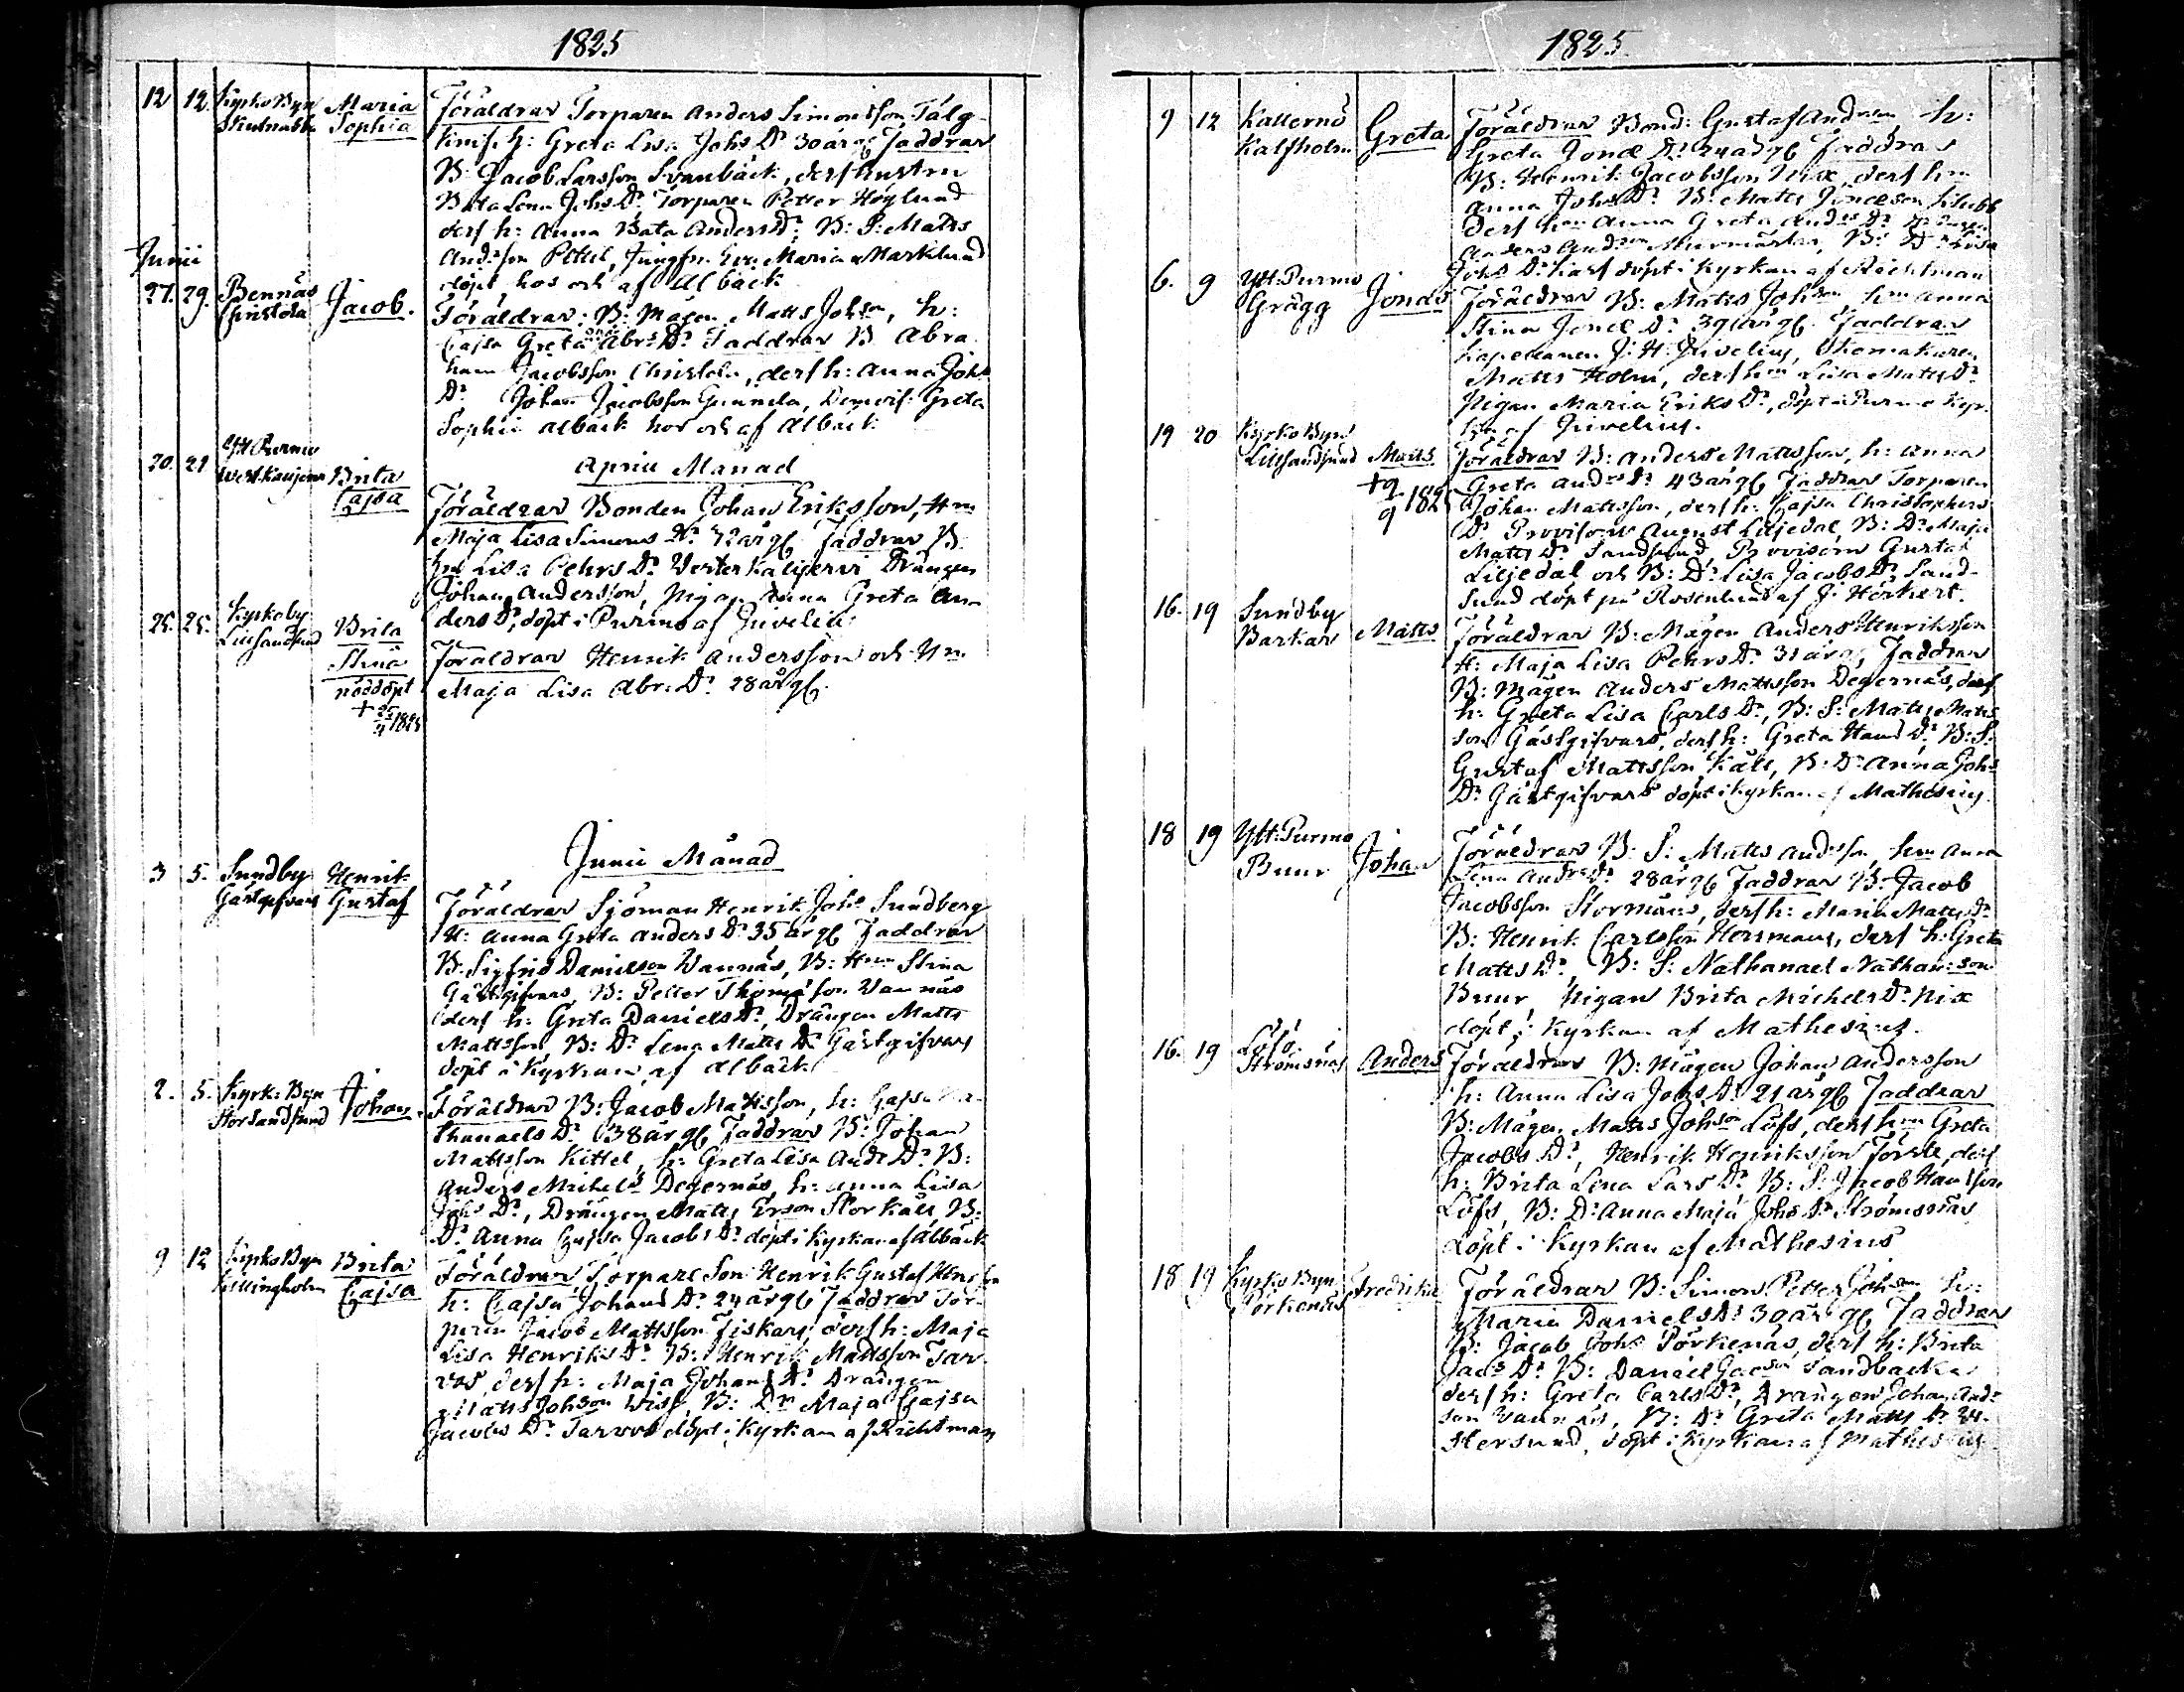 1825
12 12. Kyrko Byn Maria Föräldrar Torparen Anders Simonsson Tälg-
Skutnabba Sophia knif. h: Greta Lisa Johs Dr 30 år gl. Faddrar
B: Jacob Larsson Svanbäck, ders hustru
Beata Lena Johs Dr, Torparen Petter Höglund
ders h: Anna Beata Anders Dr, B: S: Matts
Andsson Pettel, Jungfru Eva Maria Marklund
döpt hos och af Albäck
Junii
27. 29. Bennäs Jacob. Föräldrar: B: Mågen Matts Johson, h:
Christola Cajsa Greta Abrs Dr Faddrar B Abra
ham Jacobsson Christola, ders h: Anna Johs
Dr Johan Jacobsson Gunnila, Demois: Greta
Sophia Albäck hos och af Albäck
April Månad
20. 21 Ytt Purmo Brita Föräldrar Bonden Johan Eriksson, Hm
West. Cajsa Maja Lisa Simons Dr 42 år gl. Faddrar B.
hm Lisa Pehrs Dr Vester Kalijervi Drängen
Johan Andersson, Pigan Anna Greta An
ders Dr, döpt i Purmo af Juvelius
25. 25. Kyrkoby Brita Föräldrar Henrik Andersson och Hm
Lillsandsund Stina Maja Lisa Abr. Dr 28 år gl.
nöddöpt
+ 25/4 1825
Junii Månad
3 5. Sundby Henrik Föräldrar Sjöman Henrik Johs Sundberg
Gästgifvars Gustaf H: Anna Greta Anders Dr 35 år gl Faddrar
B: Sigfrid Danielson Wannäs, B: Hm Stina
Gästgifvars, B: Petter Thomasson Wannäs
ders h: Greta Daniels Dr, Drängen Matts
Mattsson, B: Dr Lena Matts Dr Gästgifvars
döpt i Kyrkan af Albäck
2. 5. Kyrk: Byn Johan. Föräldrar B: Jacob Mattsson, h: Cajsa Na-
Storsandsund thanaels Dr 38 år gl Faddrar B: Johan
Mattsson Kittel, h: Greta Lisa Ands Dr B:
Anders Michels Degernäs, h: Anna Lisa
Johs Dr, Drängen Matts Erson Storkåll, B:
Dr Anna Cajsa Jacobs Dr döpt i Kyrkan af Albäck
9 12 Kyrko Byn Brita Föräldrar Torpare Son Henrik Gustaf
Killingholm Cajsa h: Cajsa Johans Dr 24 år gl Faddrar Tor-
paren Jacob Mattsson Fiskars, ders h: Maja
Lisa Henriks Dr B: Henrik Mattsson Tar
vos, ders h: Maja Johans Dr Drängen
Matts Johson Wisk, B: Dr Maja Cajsa
Jacobs Dr Tarvos döpt i Kyrkan af Richtman
1825.
9 12 Kallernö Greta Föräldrar Bond: Gustaf Andrsson h:
Kalfholm Greta Jonæ Dr 24 år gl Faddrar
B: Henrik Jacobsson Nix, ders hm
Anna Johs Dr B: Matts Jonæson Klubb
ders hm Anna Greta Ands Dr
Anders Andson Murmästar, B: Dr Lisa
Johs Dr döpt i Kyrkan af Richtman
6. 9 Ytt: Purmo Jonas Föräldrar B: Matts Johson, hm Anna
Grägg Stina Jonæ Dr 39 år gl. Faddrar
Kapellanen J: H: Juvelius, Skomakaren
Matts Holm, ders hm Lisa Matts Dr
Pigan Maria Eriks Dr, döpt i Purmo Kyr-
af Juvelius.
19 20 Kyrko Byn Matts Föräldrar B: Anders Mattsson, h: Anna
Lillsandsund + 9/9 1825 Greta Ands Dr 43 år gl Faddrar Torparen
Johan Mattsson, ders h: Cajsa Christophers
Dr Provisorn August Liljedal, B: Dr Maja
Matts Dr Sandsund, Provisorn Gustaf
Liljedal och B: Dr Lisa Jacobs Dr Sand-
sund döpt på Rosenlund af J: Herkert.
16. 19 Sundby Matts Föräldrar B: Mågen Anders Henriksson
Barkar H: Maja Lisa Pehrs Dr 31 år gl, Faddrar
B: Mågen Anders Mattsson Degernäs, ders
h: Greta Lisa Carls Dr, B: S: Matts Matts
son Gästgifvars, ders h: Greta Hans Dr, B: S:
Gustaf Mattsson Käll, B: Dr Anna Johs
Dr Gästgifvars döpt i Kyrkan af Mathesius
18 19 Ytt: Purmo Johan Föräldrar B: S: Matts Andsson, hm Anna
Buur Lena Ands Dr 28 år gl Faddrar B: Jacob
Jacobsson Stormåns, ders h: Maria Matts Dr
B: Henrik Carlsson Herrmans, ders h: Greta
Matts Dr, B: S: Nathanael Nathan:son
Buur, Pigan Brita Michels Dr Nix
döpt i Kyrkan af Mathesius.
16. 19 Löfö Anders Föräldrar B: Mågen Johan Andersson
Strömsnäs h: Anna Lisa Johs Dr 21 år gl Faddrar
B: Mågen Matts Johson Löfs, ders hm Greta
Jacobs Dr, Henrik Henriksson Förste, ders
h: Brita Lena Lars Dr B: S: Jacob Hansson
Löfs, B: Dr Anna Maja Johs Dr Strömsnäs
döpt i Kyrkan af Mathesius
18 19 Kyrko Byn Fredrika Föräldrar B: Simon Petter Johson h:
Pörkenäs Maria Daniels Dr 30 år gl Faddrar
B: Jacob Johs Pörkenäs, ders h: Brita
Jacs Dr B: Daniel Jacson Sandbacka
ders h: Greta Carls Dr, Drängen Johan And-
son Vannäs, B: Dr Greta Matts Dr We-
stersund, döpt i Kyrkan af Mathesius